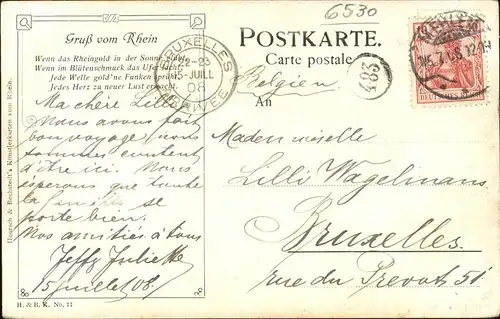 6530
Gruß vom Rhein
Wenn das Rheingold in der Sonne glüht
Wenn im Blütenschmuck das Ufer lacht,
Jede Welle gold'ne Funken sprüht
Jedes Herz zu neuer Lust erwacht.
BRUXELLES
12-23
15-JUIL
08
ARRIVÉE
POSTKARTE.
Carte postale
284
Belgien
An
15.7.08. 12-1N
10 10
DEUTSCHES
Ma chère Lilli
Nous avons fait
bon voyage, nous
sommes content
d'être ici. Nous
espérons que toute
la famille se
porte bien.
Nos amitiés à tous
Jeffy Juliette
15 juillet 08
Mademoiselle
Lilli Wagelmans
Bruxelles.
rue du Prevot 51
H. & B. K. No. 77
Hoursch & Bechstedt's Künstlerkarten vom Rhein.